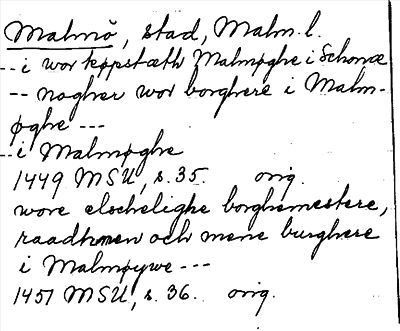 Malmö, stad, Malm. l.
-- i wor køpstæth Malmøghe i Schonæ
-- nagher wor borghere i Malm-
øghe ---
-- i Malmøghe
1449 MSU, s. 35. orig.
wore elschelighe borghemestere,
raadhmen och mene burghere
i Malmøywe ---
1451 MSU, s. 36. orig.